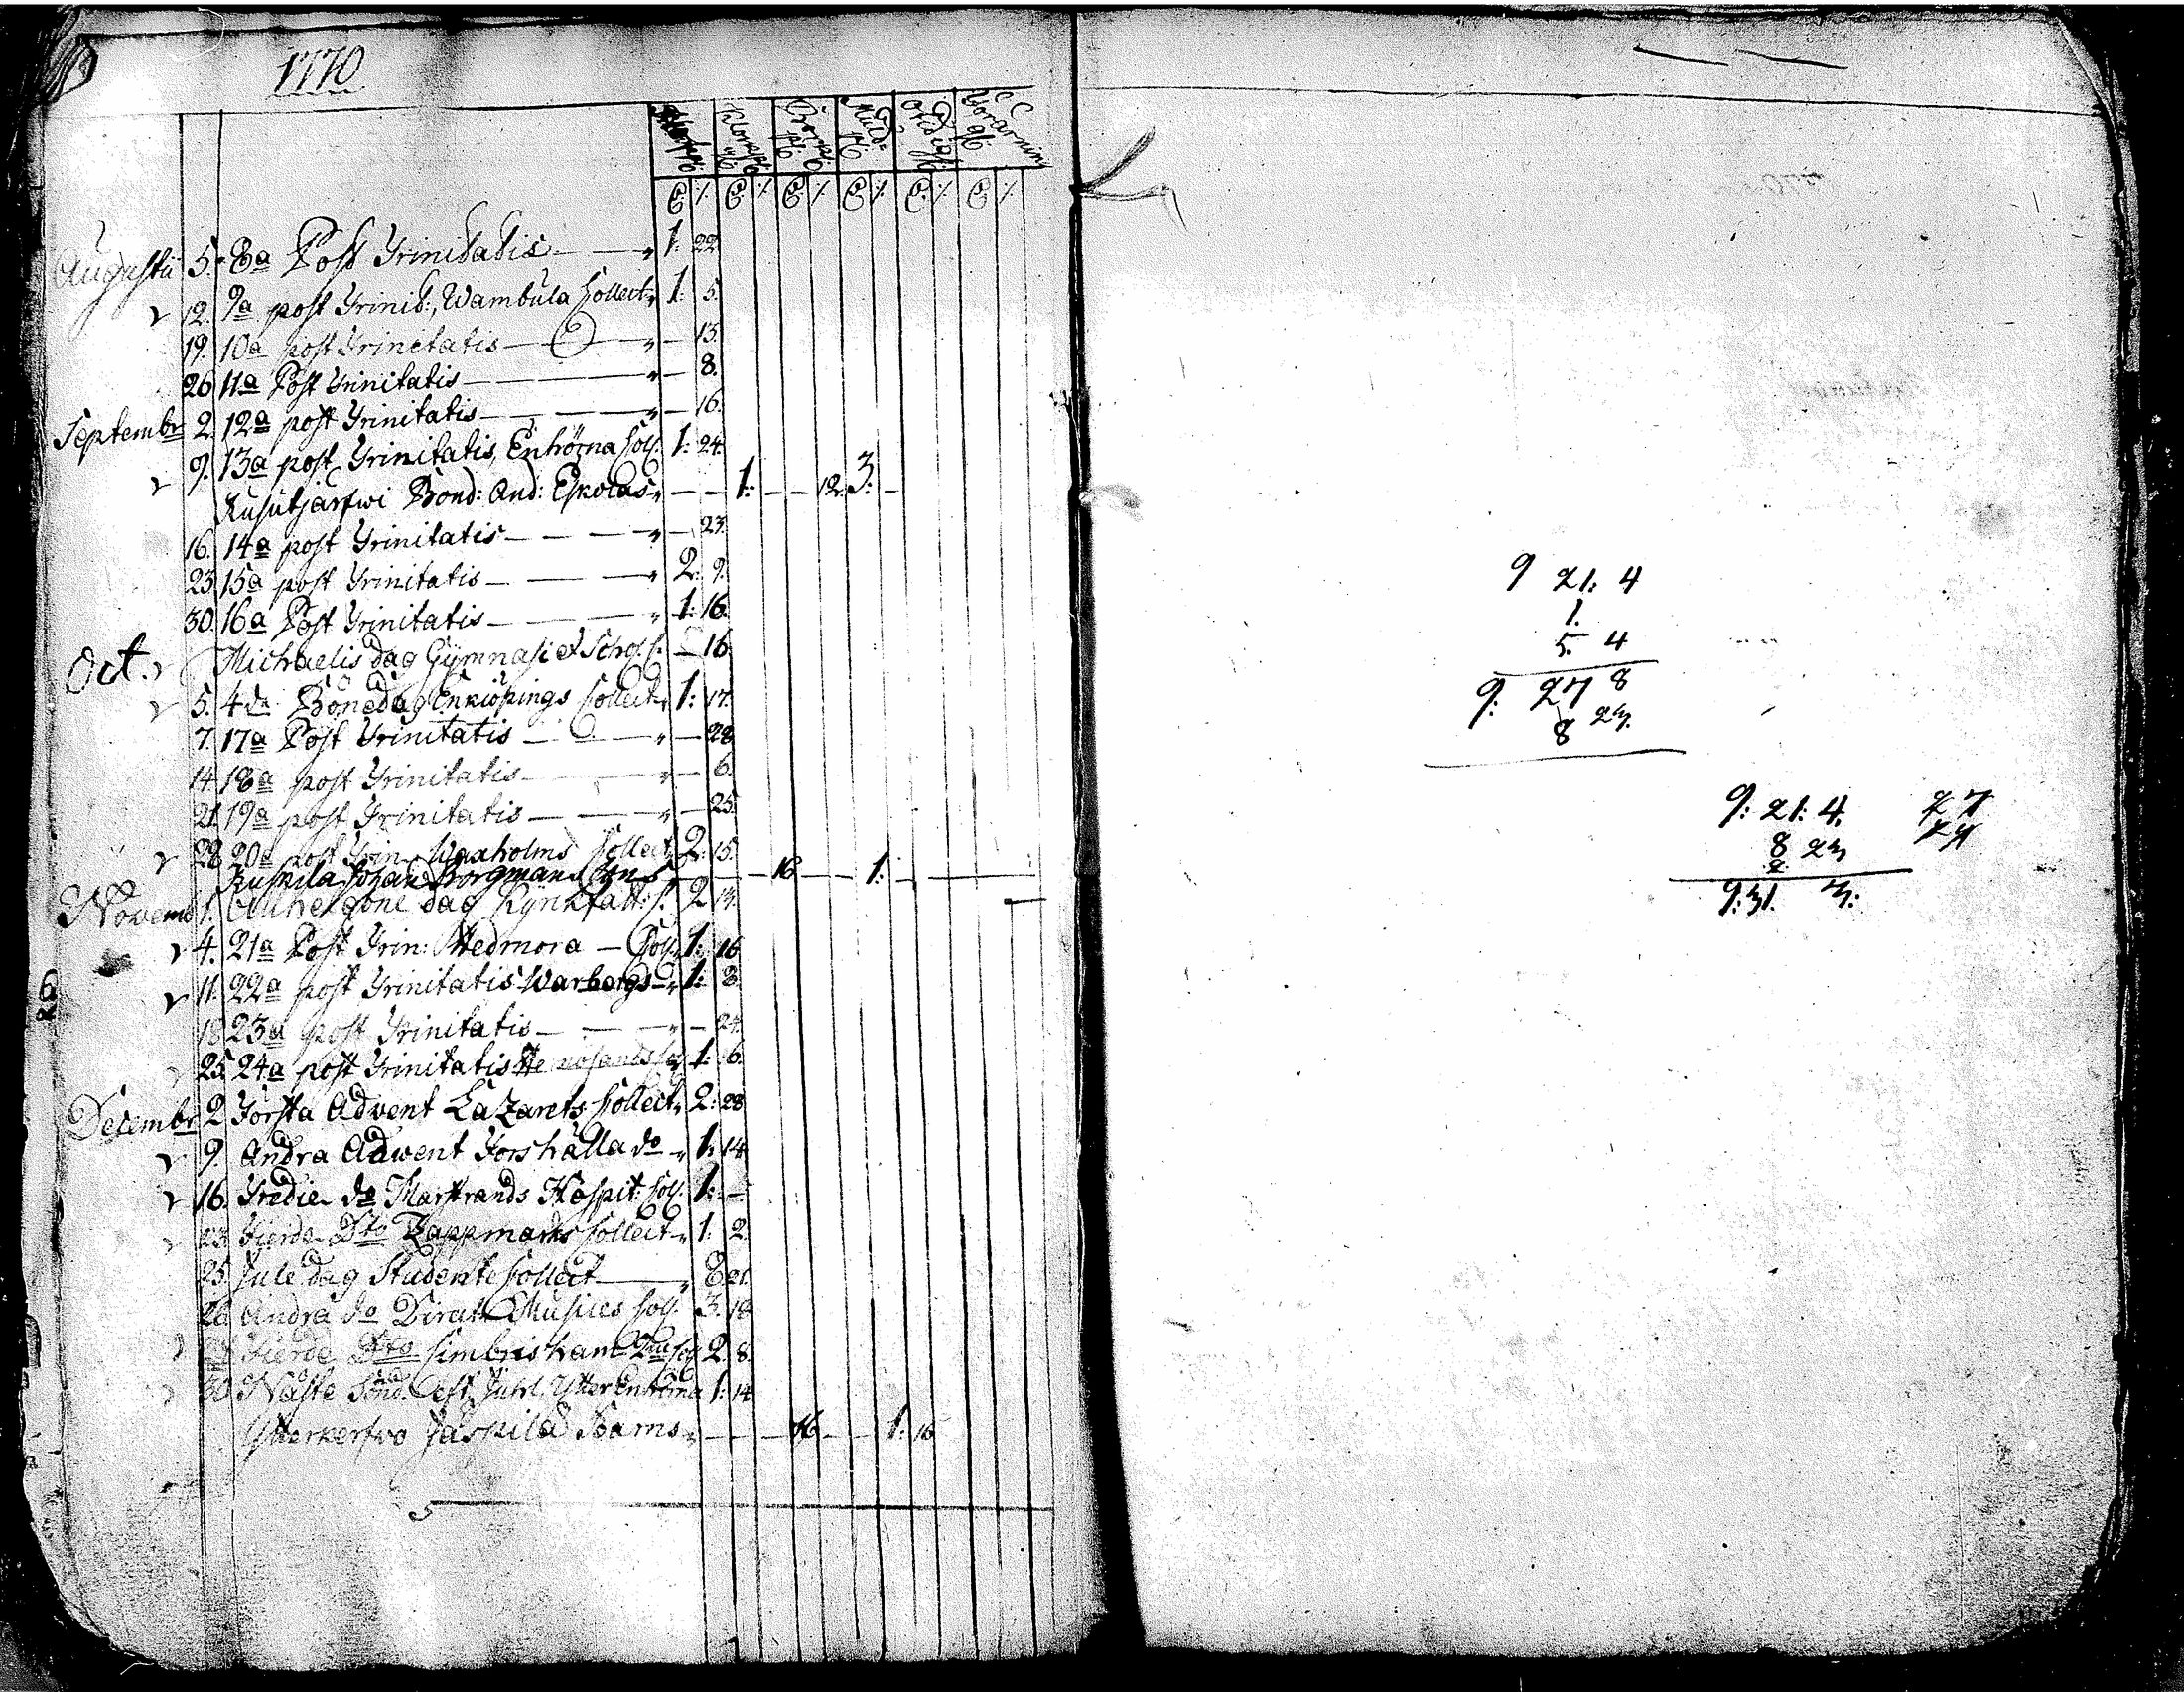 1770
Klockp:
Borrn: pg:
Mull= pg
Förarning
Augustii 5. 8a Post Trinitatis — — 1: 22
12. 9a post Trinit:, Wambula Collect 1: 5.
19. 10a post Trinitatis — — 13.
26 11a Post Trinitatis — — 8.
Septembr 2. 12a post Trinitatis — — — 16.
9. 13a post Trinitatis, Enhörna Coll. 1: 24.
Kusutjärfwi Bond: And: Eskolas — — 1: — — 12. 3: —
16. 14a post Trinitatis — — — — 23.
23. 15a post Trinitatis — — — 2: 9.
30. 16a Post Trinitatis — — — 1: 16.
Oct. Michaelis dag Gÿmnasi et Schol. C. — 16
5. 4de Bönedag Enkiöpings Collect 1: 17.
7. 17a Post Trinitatis — — — 28
14. 18a post Trinitatis — — — 6.
21. 19a post Trinitatis — — — 25.
28 20a post Trin. Waxholms Collect 2: 15.
Ruskila Johan Borgmans Sons — — 16 — 1: —
Novemb 1. Allhelgone dag Kÿrkfatt: C. 2 14.
4. 21a Post Trin: Hedmora — Coll. 1: 16
11. 22a post Trinitatis Warbergs — 1: 8
18 23a post Trinitatis — — — 24.
25. 24a post Trinitatis Hernösands Coll 1: 6.
Decembr 2 Första Advent Lazarets Collect. 2: 28
9. Andra Adwent Forshälla do — 1: 14
16. Tredie do Marstrands Hospit: Coll. 1: —
23. Fierde Dto Lappmarks Collect — 1: 2.
25. Jule dag Studente Collect — 8 21.
26 Andra do Direct. Musices Coll. 3. 18
Fierde Dto Simbrishamn Coll 2. 8.
30 Näste Sönd. eft. Juhl. Ytter Enhörna 1: 14
Ytterkerfwo Jaskila Barns — — — 16 — 1: 16
9 21: 4
1.
5. 4
9: 27 8
8 23.
9: 21: 4.
8 23
2
9: 31. 3:
27